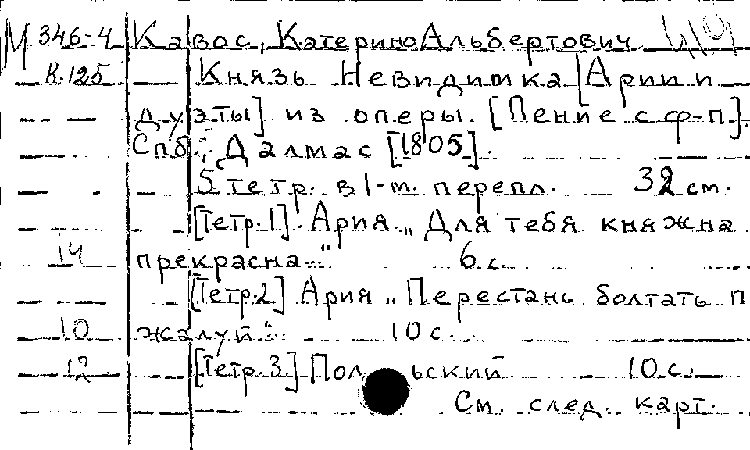 М 346-4 Кавос, Катерино Альбертович
К.125 Князь Невидимка [Арии и
дуэты] из оперы. [Пение с ф-п].
Спб., Далмас [1805].
5 тетр. в 1-т. перепл. 32 см.
[Тетр. 1] Ария „Для тебя княжна
14 прекрасна" 6 с.
[Тетр. 2] Ария „Перестань болтать п
10 жалуй" 10 с.
12 [Тетр. 3] Пол ьский 10 с.
См. след. карт.